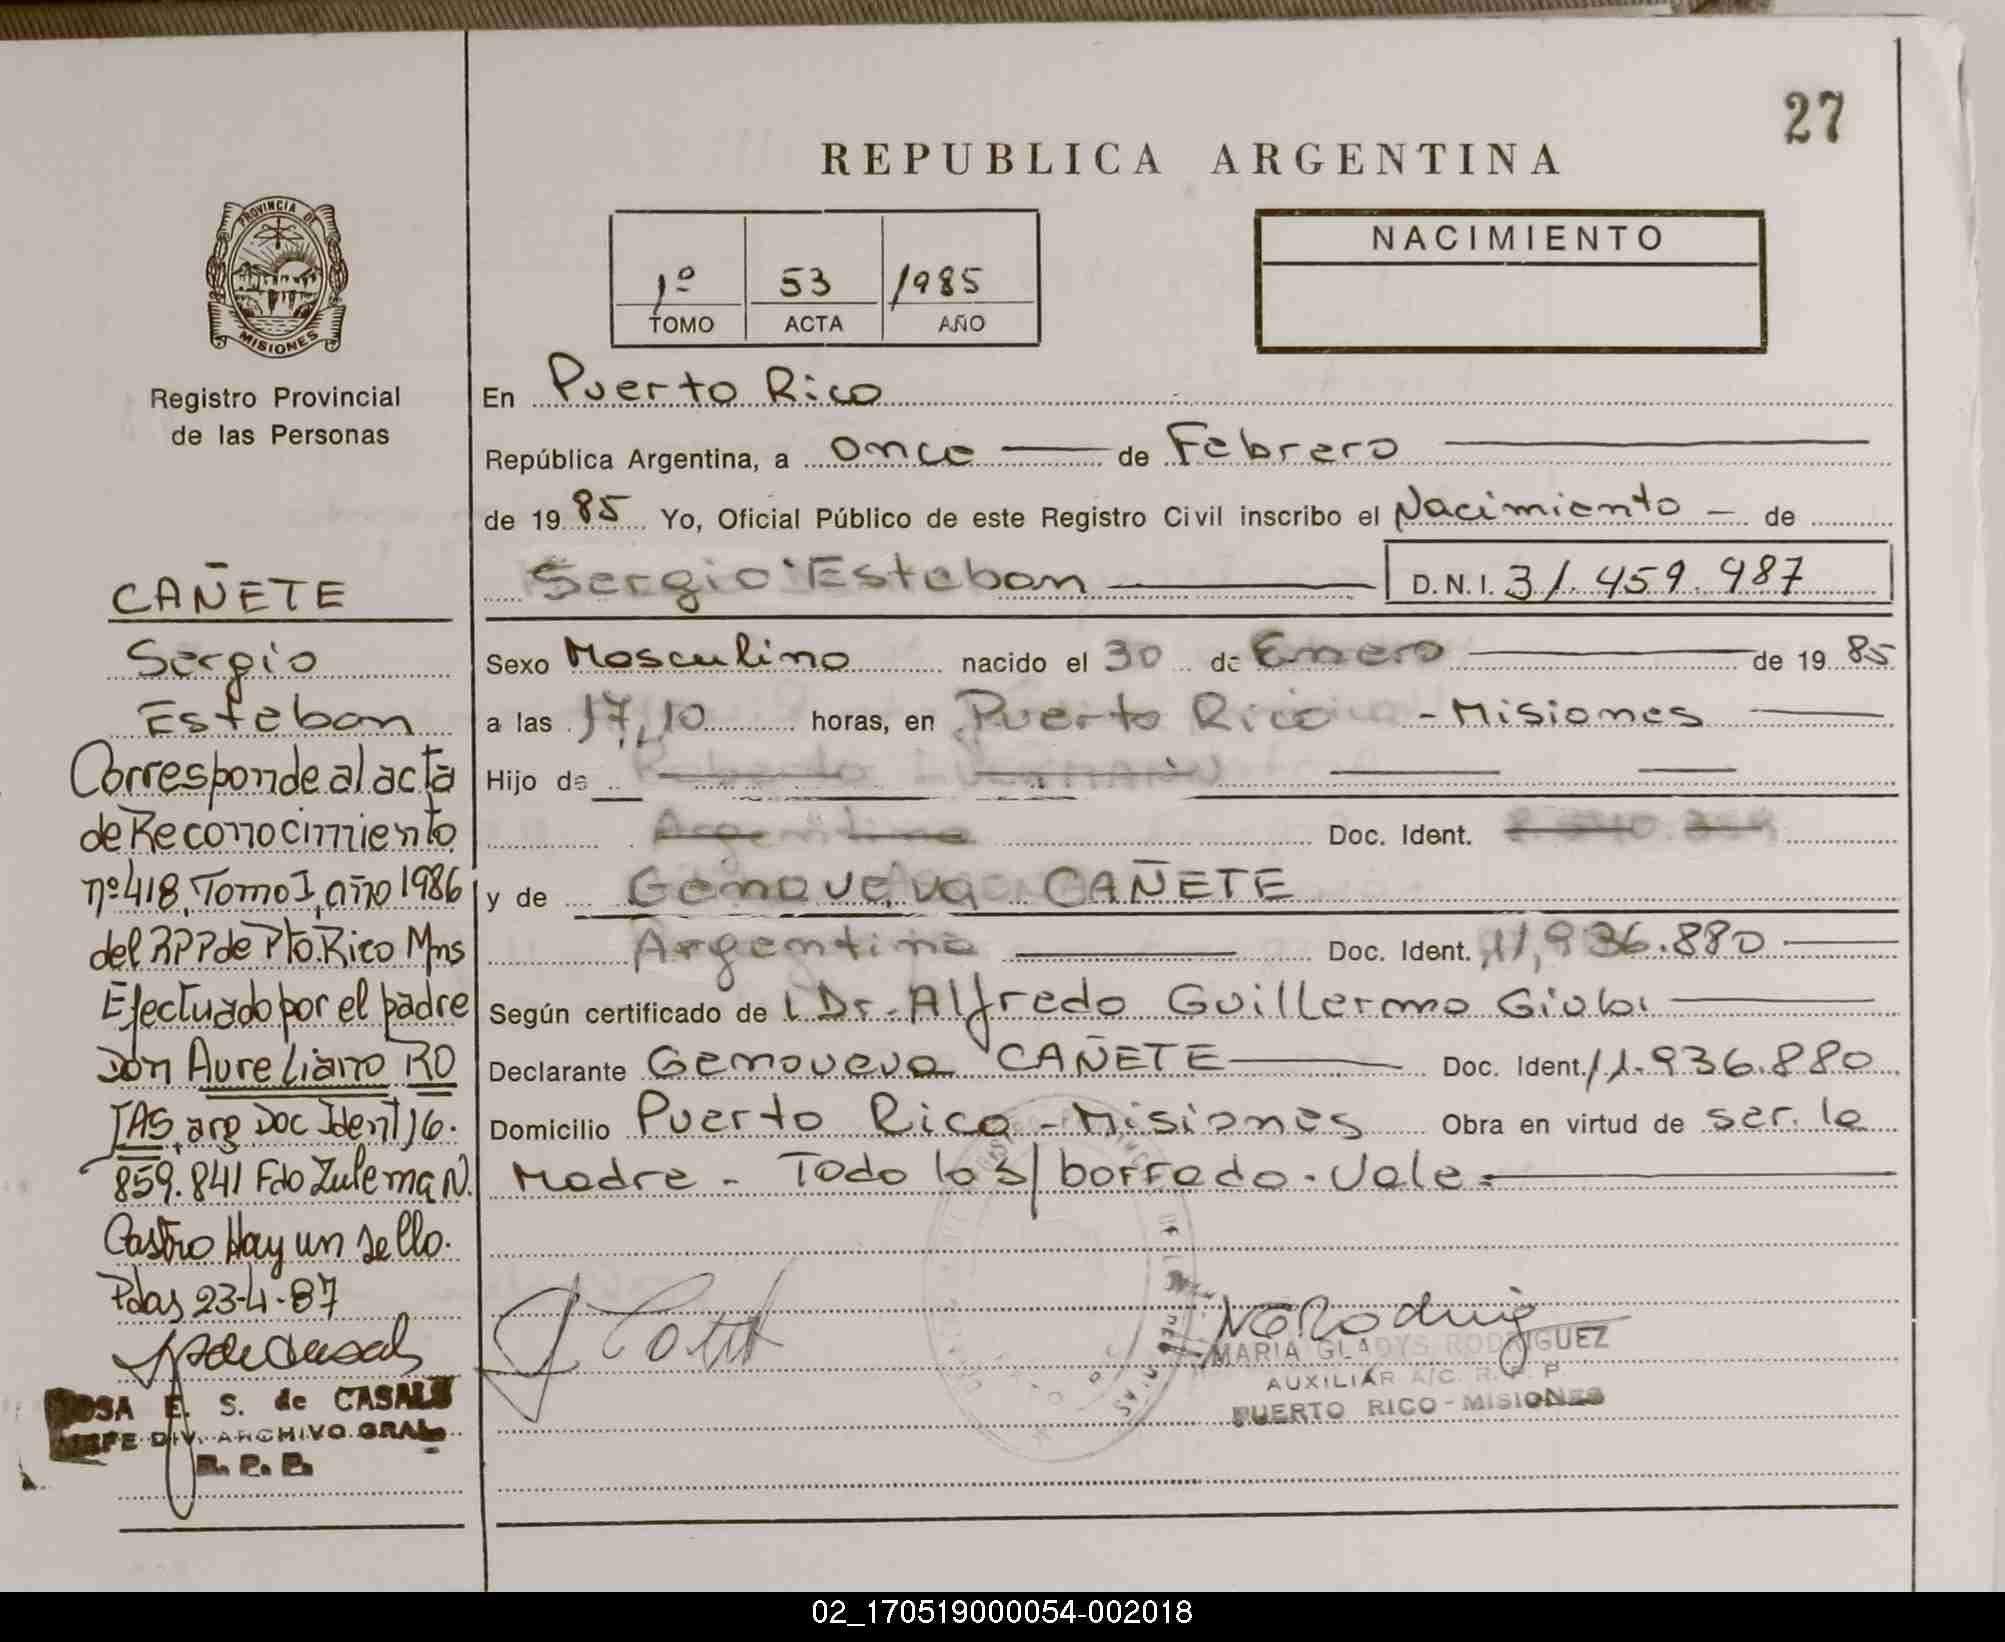 27
REPUBLICA ARGENTINA
PROVINCIA DE
MISIONES
Registro Provincial
de las Personas
1º 53 1985
TOMO ACTA AÑO
NACIMIENTO
En Puerto Rico
República Argentina, a once de Febrero
de 1985 Yo, Oficial Público de este Registro Civil inscribo el Nacimiento de
Sergio Esteban D.N.I. 31.459.987
Sexo Masculino nacido el 30 de Enero de 1985
a las 17,10 horas, en Puerto Rico - Misiones
Hijo de
Argentino Doc. Ident.
y de Genoveva CAÑETE
Argentina Doc. Ident. 11,936.880
Según certificado de Dr. Alfredo Guillermo
Declarante Genoveva CAÑETE Doc. Ident. 11.936.880
Domicilio Puerto Rico - Misiones Obra en virtud de ser la
Madre - Todo lo s/ borrado. Vale.
MARIA GLADYS RODRIGUEZ
AUXILIAR A/C. R. P. P.
PUERTO RICO - MISIONES
CAÑETE
Sergio
Esteban
Corresponde al acta
de Reconocimiento
nº 418, Tomo I, año 1986
del RPP de Pto. Rico Mns
Efectuado por el padre
Don Aureliano RO
JAS, arg Doc Ident 16.
859.841 Fdo Zulema N.
Castro Hay un sello.
Pdas 23-4-87
ROSA E. S. de CASALS
JEFE DIV. ARCHIVO GRAL.
R. P. P.
02_170519000054-002018